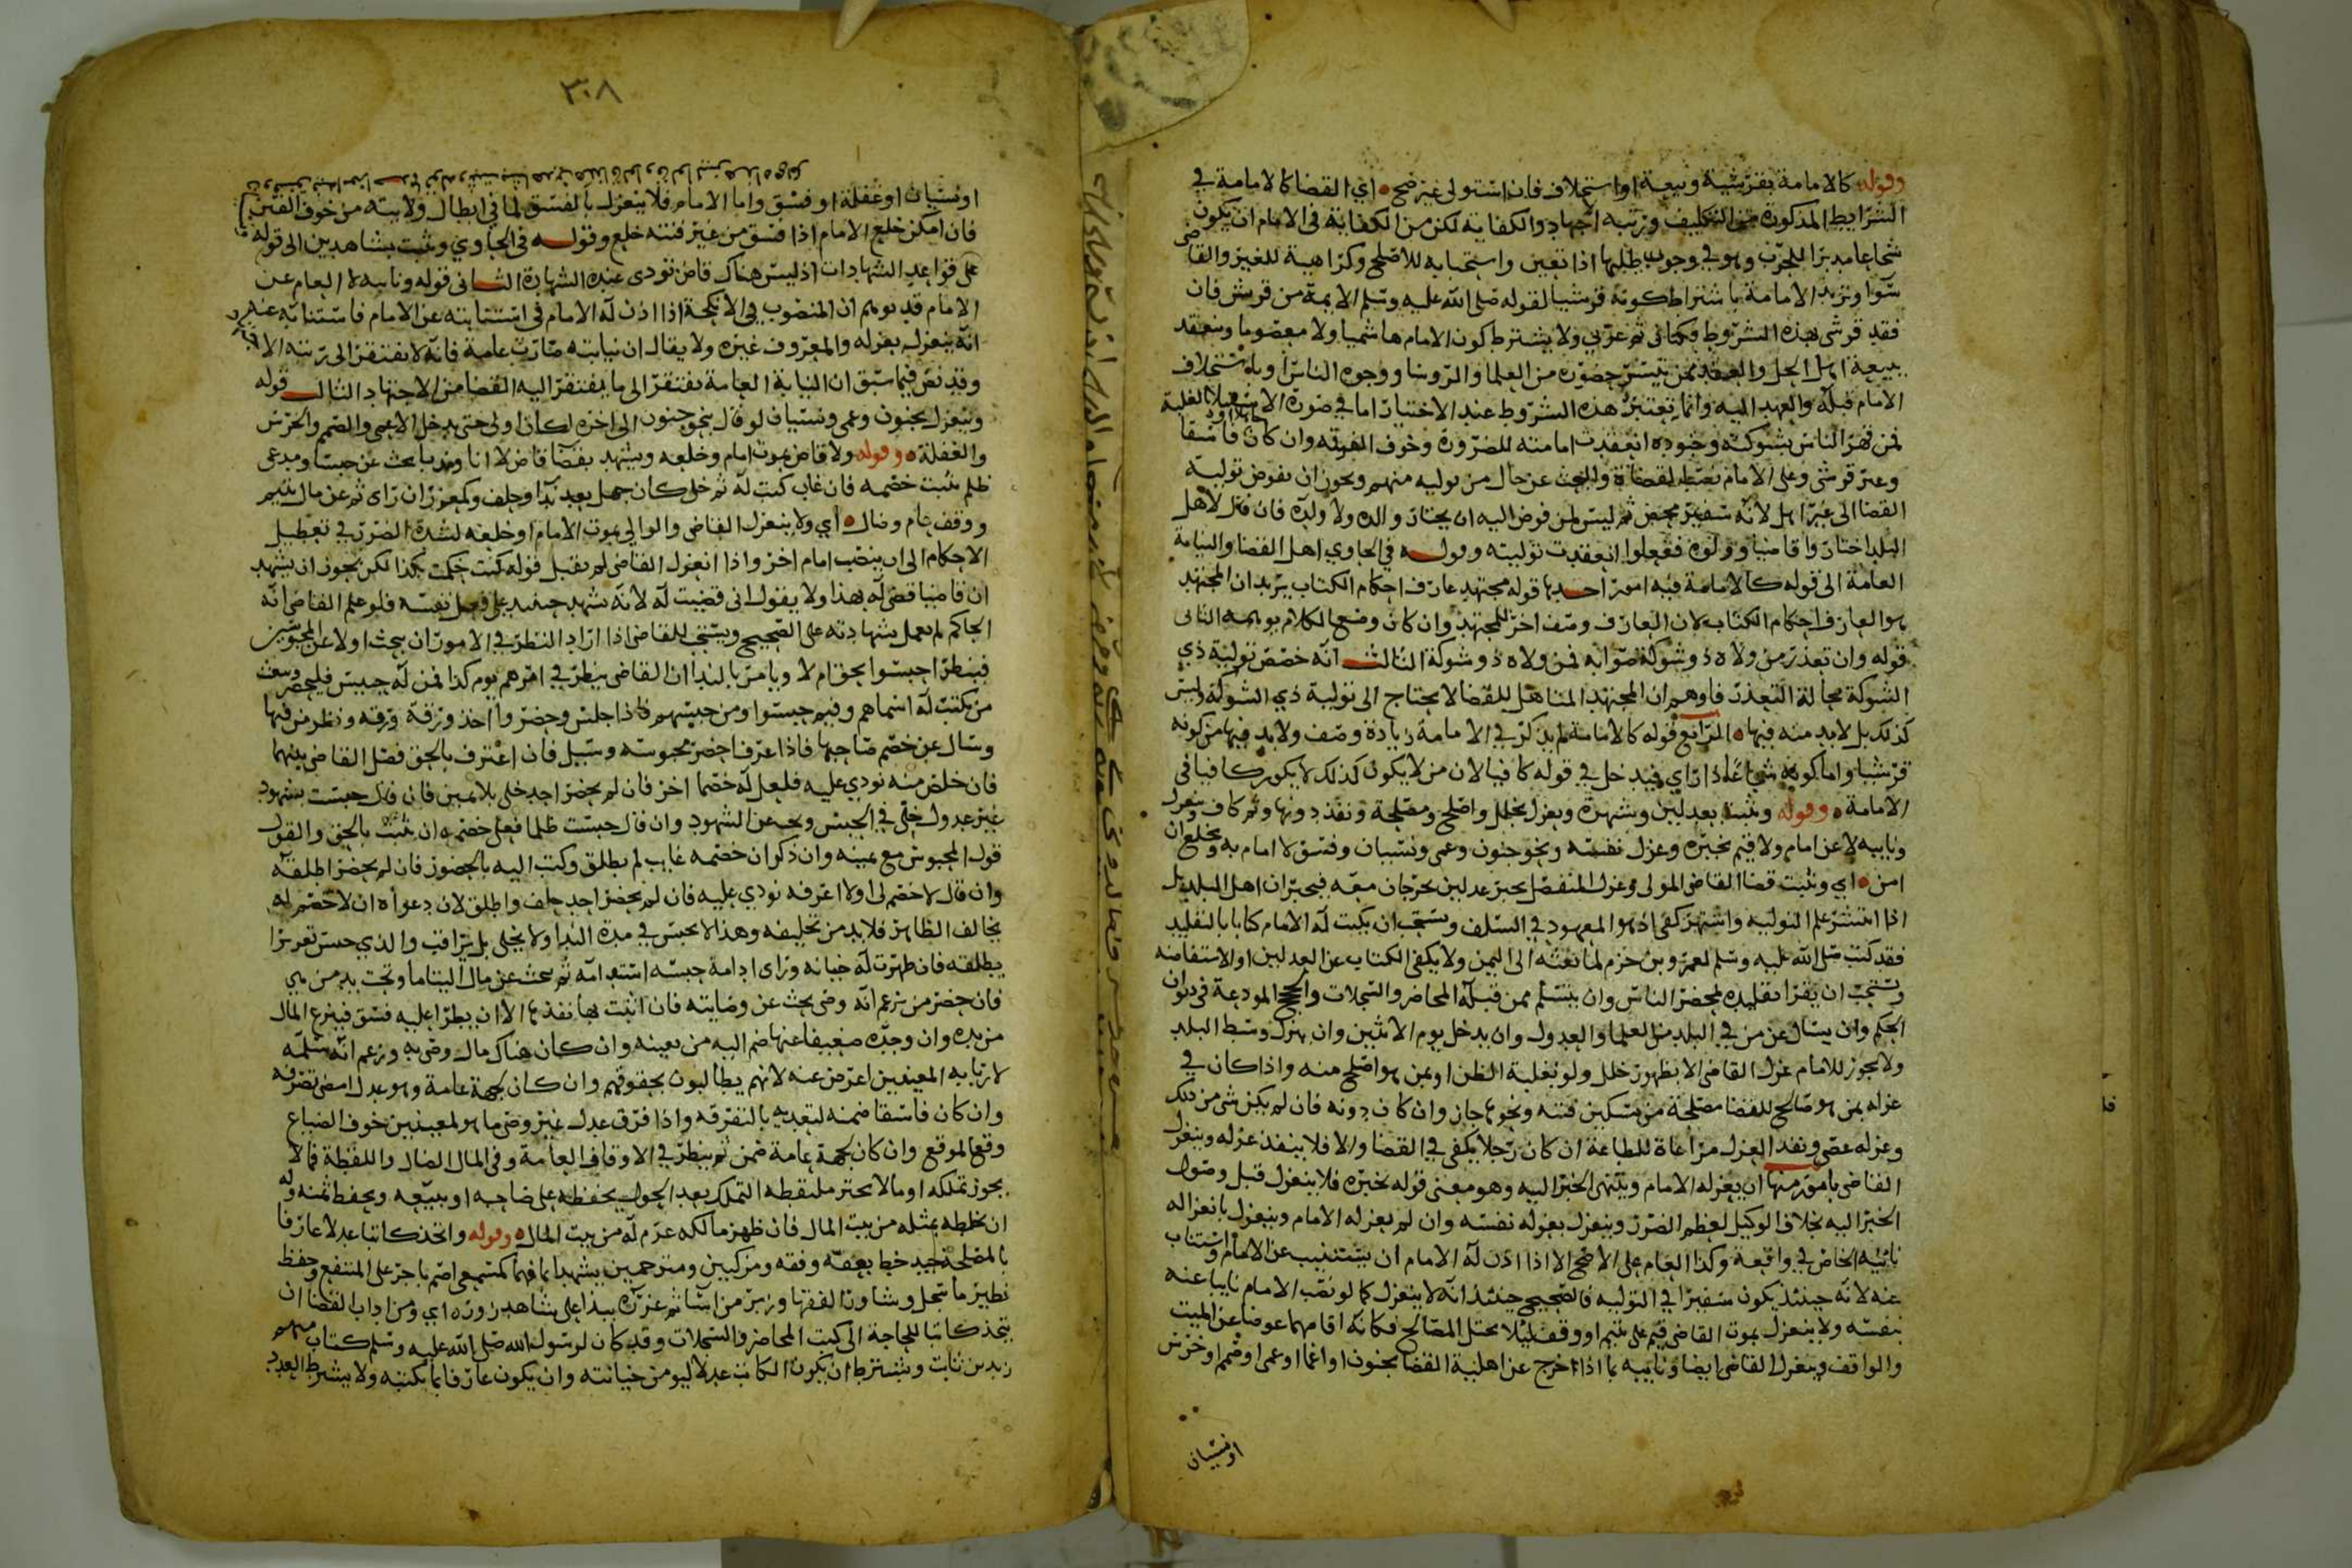 وقوله كالامامة بقرشية وبيعة او استخلاف فان استولى غير صح اي القضا كالامامة في
الشرايط المذكورة من التكليف ورتبه اجتهاد والكفاية لكن من الكفاية في الامام ان يكون
شجاعا مدبرا للحرب وهو في وجوب طلبها اذا تعين واستحبابه للاصلح وكراهية للغير والقاضي
سوا وتزيد الامامة باشتراط كونه قرشيا لقوله صلى الله عليه وسلم الايمة من قريش فان
فقد قرشي بهذه الشروط فكناني ثم عربي ولا يشترط كون الامام هاشميا ولا معصوما وتنعقد
ببيعة اهل الحل والعقد ممن تيسر حضوره من العلما والروسا ووجوه الناس او باستخلاف
الامام قبله والعهد اليه وانما تعتبر هذه الشروط عند الاختيار اما في صورة الاستيلا والغلبة
فمن قهر الناس بشوكته وجنوده انعقدت امامته للضرورة وخوف الفتنه وان كان فاسقا
وغير قرشي وعلى الامام نصب القضاة والبحث عن حال من يوليه منهم ويجوز ان يفوض تولية
القضا الى غير اهل لانه سفير محض ثم ليس لمن فوض اليه ان يختار والده ولا ولده فان قال لاهل
البلد اختاروا قاضيا وولوه ففعلوا انعقدت توليته وقوله في الحاوي اهل القضا والنيابة
العامة الى قوله كالامامة فيه امور احدها قوله مجتهد عارف احكام الكتاب يريد ان المجتهد
هو العارف احكام الكتاب لان العارف وصف اخر للمجتهد وان كان وضع الكلام يوهمه الثاني
قوله وان تعذر من ولاه ذو شوكة صوابه فمن ولاه ذو شوكة الثالث انه خصص تولية ذي
الشوكة بحالة التعذر فاوهم ان المجتهد المتاهل للقضا لا يحتاج الى تولية ذي الشوكة وليس
كذلك بل لا بد منه فيها الرابع قوله كالامامة لم يذكر في الامامة زيادة وصف ولا بد فيها من كونه
قرشيا واما كونه شجاعا ذا راي فيدخل في قوله كافيا لان من لا يكون كذلك لا يكون كافيا في
الامامة وقوله وتثبت بعدلين وشهرة وبعزل بخلل واصلح ومصلحة ونفذ دونها وثم كاف وينعزل
ونايبه لا عن امام ولا قيم بخبره وعزل نفسه وبنحو جنون وعمى ونسيان وفسق لا امام به ويخلع ان
امن اي وتثبت قضا القاضي المولى وعزل المنفصل بخبر عدلين يخرجان معه فيخبران اهل البلد بل
اذا انتشر علم التولية واشتهر كفى اذ هو المعهود في السلف ويستحب ان يكتب له الامام كتابا بالتقليد
فقد كتب صلى الله عليه وسلم لعمرو بن حزم لما بعثه الى اليمن ولا يكفي الكتاب عن العدلين او الاستفاضه
ويستحب ان يقرا تقليده بمحضر الناس وان يتسلم ممن قبله المحاضر والسجلات والحجج المودعة في ديوان
الحكم وان يسال عن من في البلد من العلما والعدول وان يدخل يوم الاثنين وان ينزل وسط البلد
ولا يجوز للامام عزل القاضي الا بظهور خلل ولو بغلبة الظن او بمن هو اصلح منه واذا كان في
عزله بمن هو صالح للقضا مصلحة من تسكين فتنه ونحوها جاز وان كان دونه فان لم يكن شي من ذلك
وعزله عصى ونفذ العزل مراعاة للطاعة ان كان رجلا يكفي في القضا والا فلا ينفذ عزله وينعزل
القاضي بامور منها ان يعزله الامام وينتهي الخبر اليه وهو معنى قوله بخبره فلا ينعزل قبل وصول
الخبر اليه بخلاف الوكيل لعظم الضرر وينعزل بعزله نفسه وان لم يعزله الامام وينعزل بانعزاله
نائبه الخاص في واقعة وكذا العام على الاصح الا اذا اذن له الامام ان يستنيب عن الامام واستناب
عنه لانه حينئذ يكون سفيرا في التولية فالصحيح حينئذ انه لا ينعزل كما لو نصب الامام نايبا عنه
بنفسه ولا ينعزل بموت القاضي قيم على يتيم او وقف ليلا يختل المصالح فكانه اقامهما عوضا عن الميت
والواقف وينعزل القاضي ايضا ونايبه بما اذا خرج عن اهلية القضا بجنون او اغما او عمى او صمم او خرس
او نسيان
٣٠٨
او نسيان او غفلة او فسق واما الامام فلا ينعزل بالفسق لما في ابطال ولايته من خوف الفتن
فان امكن خلع الامام اذا فسق من غير فتنه خلع وقوله في الحاوي وتثبت بشاهدين الى قوله
على قواعد الشهادات اذ ليس هناك قاض تودى عنده الشهادة الثاني قوله ونايبه لا العام عن
الامام قد يوهم ان المنصوب في الانكحة اذا اذن له الامام في استنابته عن الامام فاستنابه عنه
انه ينعزل بعزله والمعروف غيره ولا يقال ان نيابته صارت عامة فانه لا يفتقر الى رتبه الا
وقد نص فيما سبق ان النيابة العامة يفتقر الى ما يفتقر اليه القضا من الاجتهاد الثالث قوله
وينعزل بجنون وعمى ونسيان لو قال بنحو جنون الى اخره لكان اولى حتى يدخل الاعمى والصمم والخرس
والغفلة وقوله ولا قاض بموت امام وخلعه ويشهد بقضا قاض لا انا وندبا بحث عن حبسا ومدعي
ظلم يثبت خصمه فان غاب كتب له ثم خلى كان جهل بعد ندا وحلف وكمعزر ان راى ثم عن مال يتيم
ووقف عام وضال اي ولا ينعزل القاضي والوالي بموت الامام او خلعه لشدة الضرر في تعطيل
الاحكام الى ان ينصب امام اخر واذا انعزل القاضي لم يقبل قوله كنت حكمت بكذا لكن يجوز ان يشهد
ان قاضيا قضى له بهذا ولا يقول اني قضيت له لانه شهد حينئذ على فعل نفسه فلو علم القاضي انه
الحاكم لم يعمل بشهادته على الصحيح ويستحب للقاضي اذا اراد النظر في الامور ان يبحث اولا عن المحبوسين
فينظر احبسوا بحق ام لا ويامر بالندا ان القاضي ينظر في امرهم يوم كذا فمن له حبيس فليحضر وبعث
من يكتب له اسماهم وفيم حبسوا ومن حبسهم فاذا جلس وحضروا اخذ ورقة ورقه ونظر من فيها
وسال عن خصم صاحبها فاذا عرف احضر محبوسه وسيل فان اعترف بالحق فصل القاضي بينهما
فان خلص منه نودي عليه فلعل له خصما اخر فان لم يحضر احد خلي بلا يمين فان قال حبست بشهود
غير عدول خلي في الحبس وبحث عن الشهود وان قال حبست ظلما فعلى خصمه ان يثبت بالحق والقول
قول المحبوس مع يمينه وان ذكر ان خصمه غايب لم يطلق وكتب اليه بالحضور فان لم يحضر اطلقه
وان قال لا خصم لي اولا اعرفه نودي عليه فان لم يحضر احد حلف واطلق لان دعواه ان لا خصم له
يخالف الظاهر فلا بد من تحليفه وهذا لا يحبس في مدة الندا ولا يخلى بل يراقب والذي حبس تعزيرا
يطلقه فان ظهرت له خيانه وراى ادامة حبسه استدامه ثم يبحث عن مال اليتاما وتحت يد من هي
فان حضر من زعم انه وصي بحث عن وصايته فان اثبت بها نفذها الا ان يطرا عليه فسق فينزع المال
من يده وان وجده ضعيفا عنها ضم اليه من يعينه وان كان هناك مال وصي به وزعم انه سلمه
لاربابه المعينين اعرض عنه لانهم يطالبون بحقوقهم وان كان لجهة عامة وهو عدل امضى تصرفه
وان كان فاسقا ضمنه لتعديه بالتفرقه واذا فرق عدل غير وصي ما هو لمعينين خوف الضياع
وقع الموقع وان كان لجهة عامة ضمن ثم ينظر في الاوقاف العامة وفي المال الضال واللقطة فما لا
يجوز تملكه او ما لا يختر ملتقطه التملك بعد الحول يحفظه على صاحبه او يبيعه ويحفظ ثمنه وله
ان يخلطه بمثله من بيت المال فان ظهر مالكه غرم له من بيت المال وقوله واتخذ كاتبا عدلا عارفا
بالمصلحة جيد خط بعفه وفقه ومزكيين ومترجمين يشهدا بما فهما كمستمعي اصم باجر على المنتفع وحفظ
نظير ما سجل وشاور الفقها وزبر من اسا ثم عزره بيدا على شاهد زور اي ومن اداب القضا ان
يتخذ كاتبا للحاجة الى كتب المحاضر والسجلات وقد كان لرسول الله صلى الله عليه وسلم كتاب منهم
زيد بن ثابت ويشترط ان يكون الكاتب عدلا ليومن خيانته وان يكون عارفا بما يكتبه ولا يشترط العدد